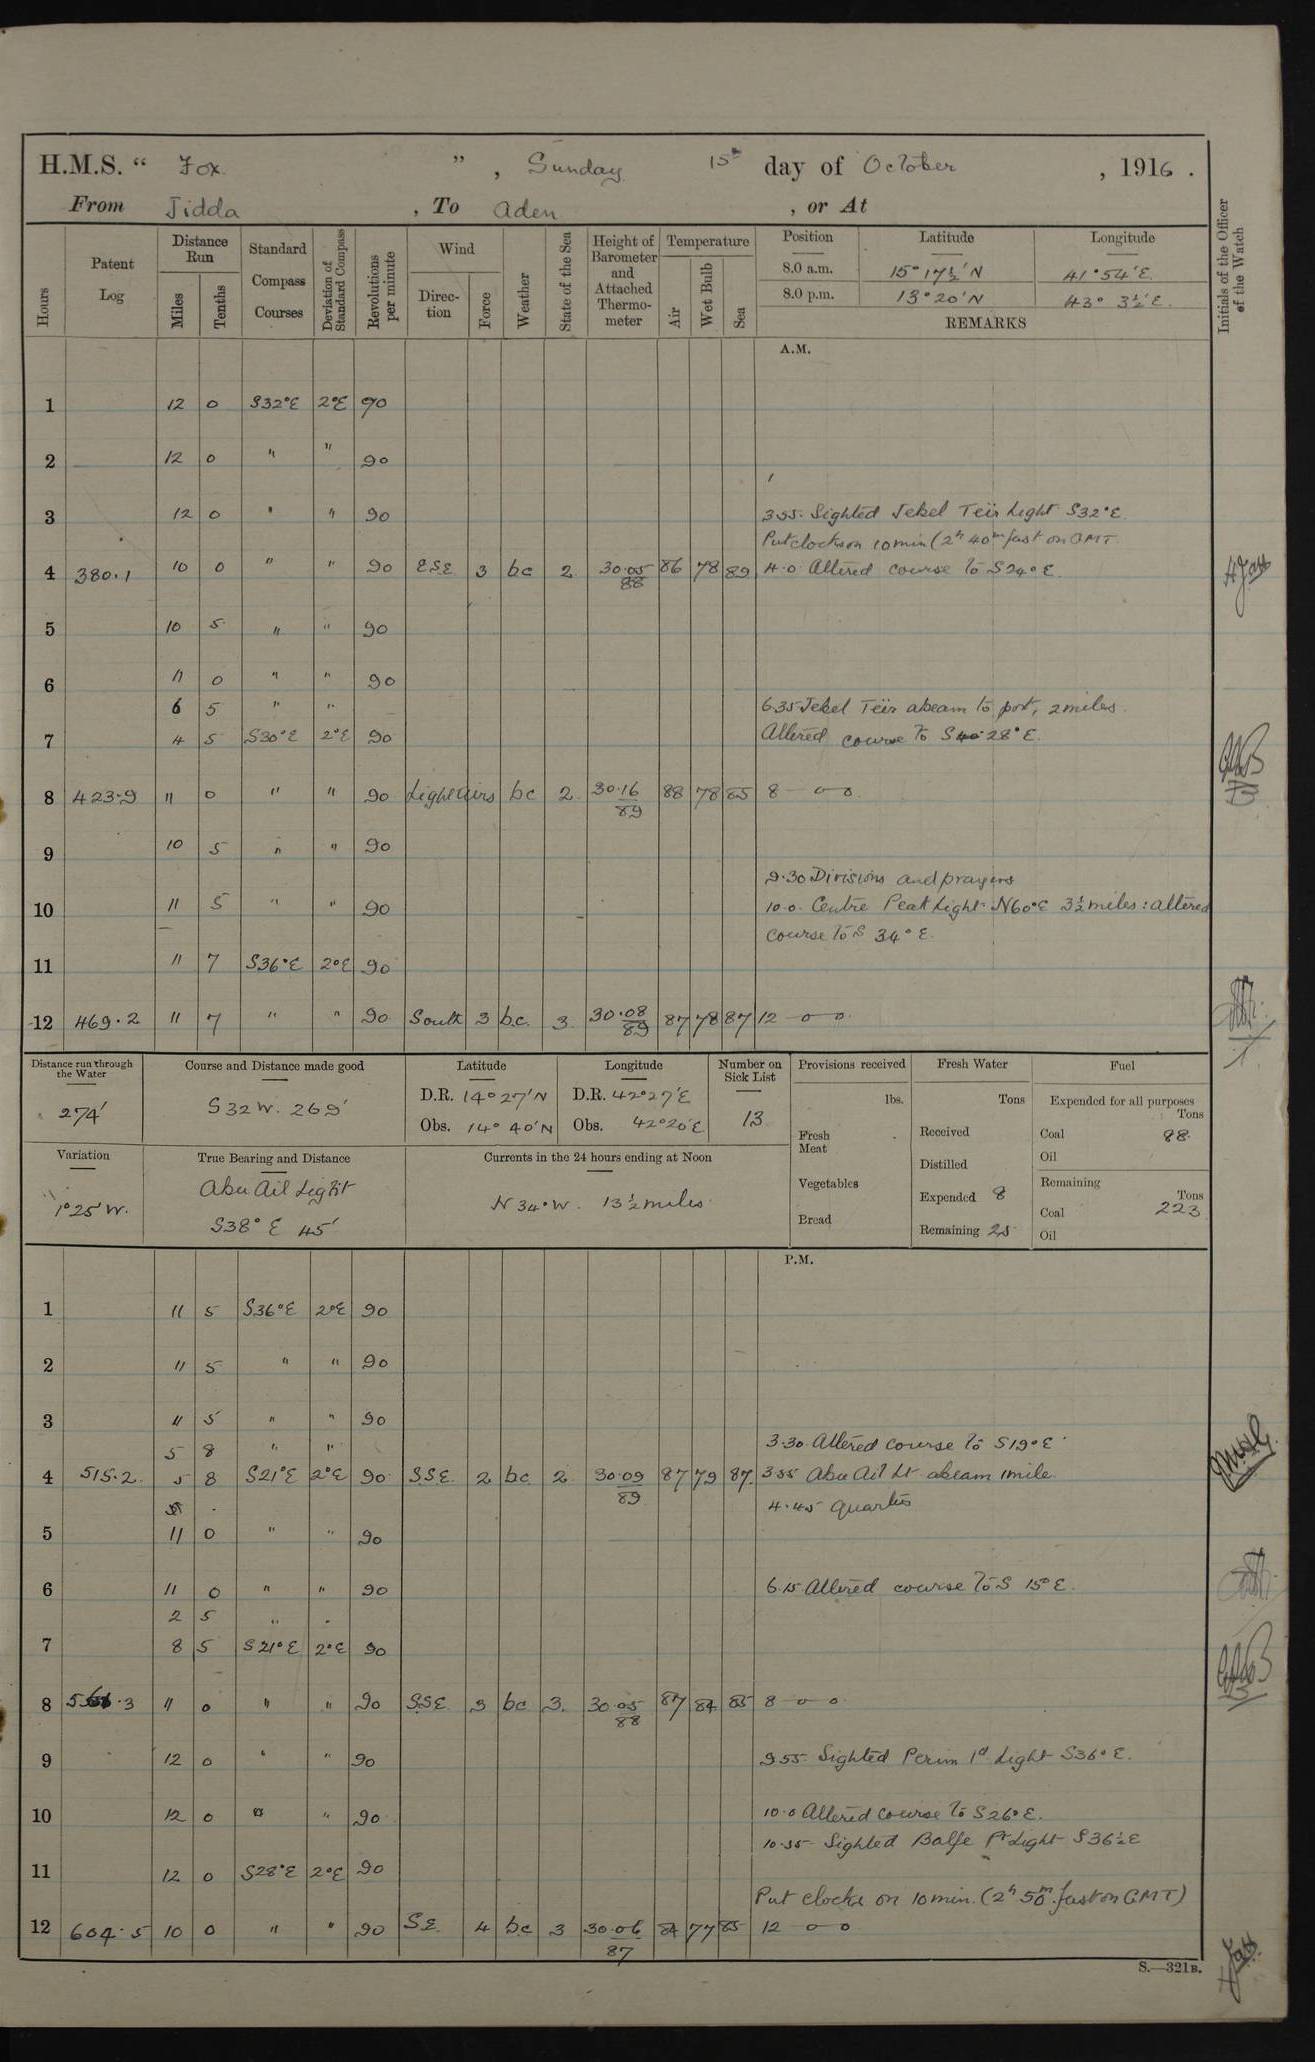 H.M.S. “ Fox ” , Sunday 15th day of October , 1916 .
From Jidda , To Aden , or At
Hours
Patent Log
Distance Run
Miles
Tenths
Standard Compass Courses
Deviation of Standard Compass
Revolutions per minute
Wind
Direc-tion
Force
Weather
State of the Sea
Height of Barometer and Attached Thermo-meter
Temperature
Air
Wet Bulb
Sea
Position Latitude Longitude
8.0 a.m. 15° 17½' N 41° 54' E.
8.0 p.m. 13° 20' N 43° 3½' E.
REMARKS
Initials of the Officer of the Watch
A.M.
1 12 0 S32°E 2°E 90
2 12 0 " " 90
3 12 0 " " 90 3.55. Sighted Jebel Teir Light S32°E.
Put clocks on 10 min (2h 40m fast on GMT
4 380.1 10 0 " " 90 ESE 3 bc 2 30.05 88 86 78 89 4.0 Altered course to S24°E.
5 10 5 " " 90
6 11 0 " " 90
6 5 " " 6.35 Jebel Teir abeam to port, 2 miles.
7 4 5 S30°E 2°E 90 Altered course to S 28°E.
8 423.9 11 0 " " 90 Light airs bc 2 30.16 89 88 78 85 8 — o — o.
9 10 5 " " 90
9.30 Divisions and prayers
10 11 5 " " 90 10.0. Centre Peak Light N60°E 3½ miles: altered
course to S 34° E.
11 11 7 S36°E 2°E 90
12 469.2 11 7 " " 90 South 3 b.c. 3. 30.08 89 87 78 87 12 — o — o.
Distance run through the Water
274'
Course and Distance made good
S 32 W. 269'
Latitude
D.R. 14° 27' N
Obs. 14° 40' N
Longitude
D.R. 42° 27' E
Obs. 42° 20' E
Number on Sick List
13
Provisions received
lbs.
Fresh Meat
Vegetables
Bread
Fresh Water
Tons
Received
Distilled
Expended 8
Remaining 25
Fuel
Expended for all purposes
Tons
Coal 88
Oil
Remaining
Tons
Coal 223
Oil
Variation
1° 25' W.
True Bearing and Distance
Abu Ail Light
S38° E 45'
Currents in the 24 hours ending at Noon
N 34° W. 13½ miles
P.M.
1 11 5 S36°E 2°E 90
2 11 5 " " 90
3 11 5 " " 90
5 8 " " 3.30. Altered course to S19°E
4 515.2 5 8 S21°E 2°E 90 SSE. 2 bc 2 30.09 89 87 79 87. 3.55 Abu Ail Lt. abeam 1 mile.
4.45 Quarters
5 11 0 " " 90
6 11 0 " " 90 6.15 Altered course to S 15° E.
2 5 " "
7 8 5 S21°E 2°E 90
8 .3 11 0 " " 90 SSE. 3 bc 3. 30.05 88 87 84 85 8 — o — o.
9 12 0 " " 90 9.55. Sighted Perim Id Light S36° E.
10 12 0 " " 90 10.0 Altered course to S26°E.
10.55 Sighted Balfe Pt Light S36½E
11 12 0 S28°E 2°E 90
Put clocks on 10 min. (2h 50m fast on GMT)
12 604.5 10 0 " " 90 SE. 4 bc 3 30.06 87 84 77 85 12 — o — o.
S.—321B.